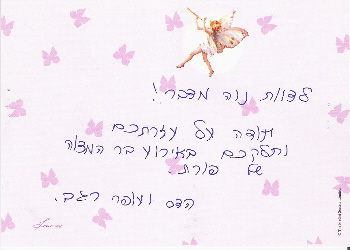 לצוות נוה מדבר!
תודה על עזרתכם
וחלקכם באירוע בר המצוה
של פורת.
הדס ועופר רגב.